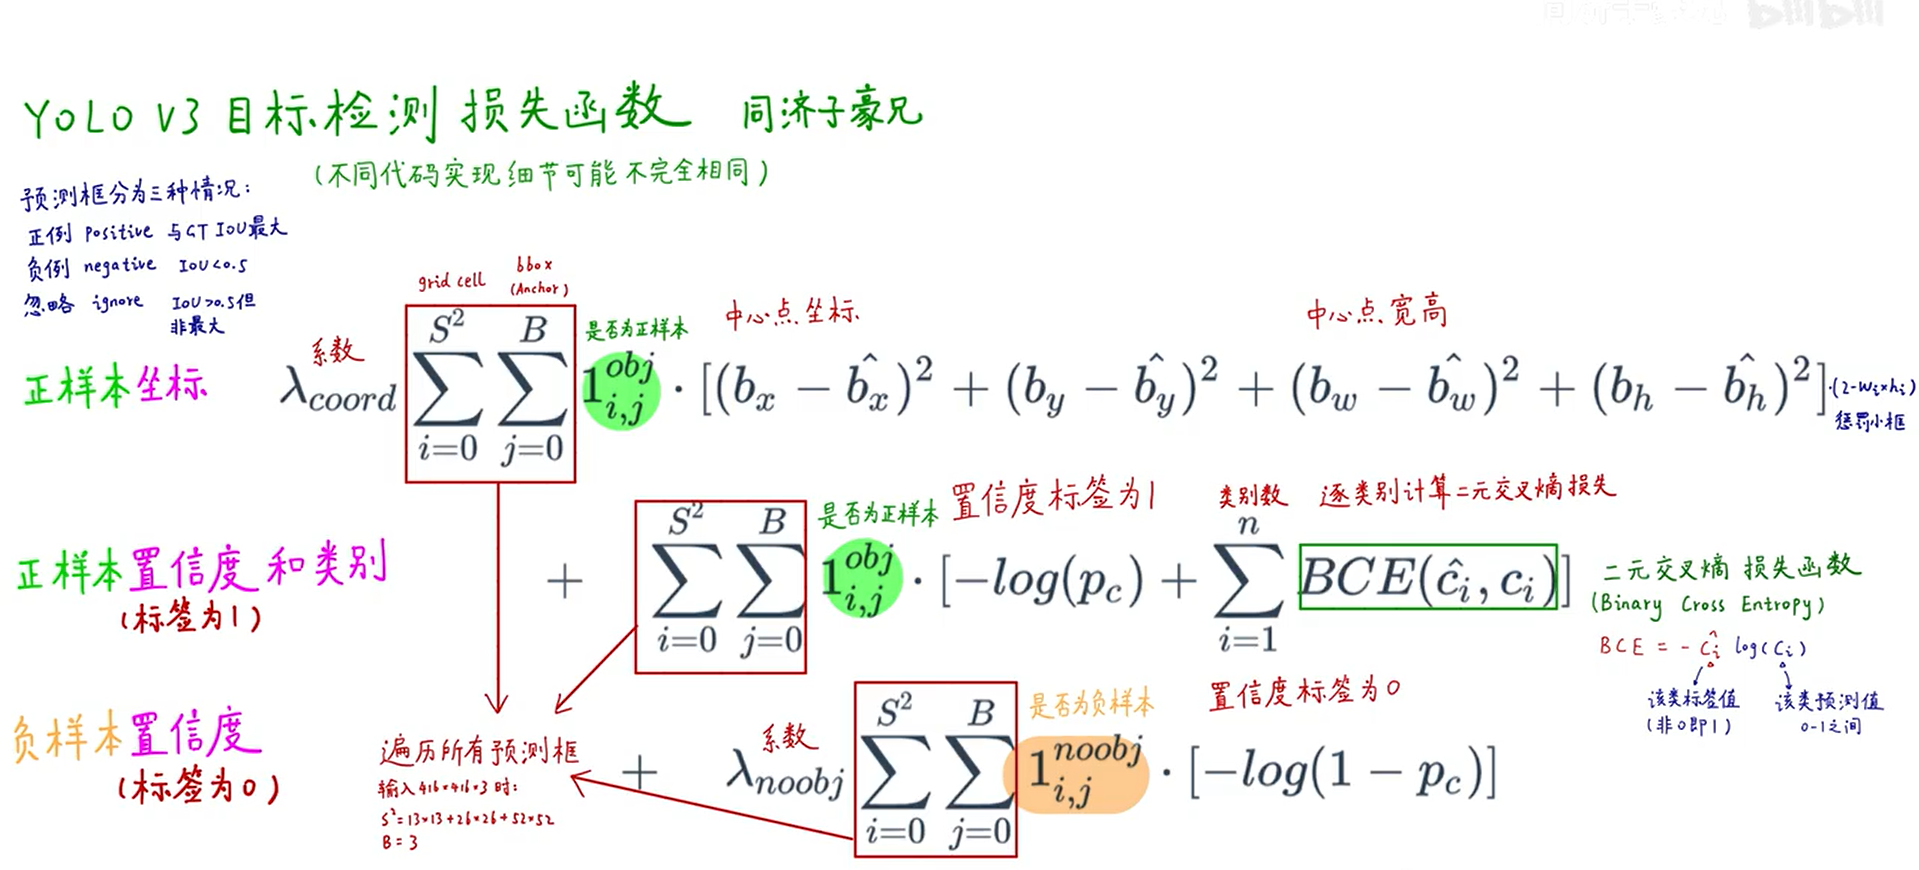 bilibili
YOLO V3 目标检测 损失函数 同济子豪兄
(不同代码实现细节可能不完全相同)
预测框分为三种情况:
正例 positive 与GT IoU最大
负例 negative IoU<0.5
忽略 ignore IoU>0.5但
非最大
grid cell
bbox
(Anchor)
正样本坐标
系数
是否为正样本
中心点坐标
中心点宽高
λ_coord ∑_{i=0}^{S^2} ∑_{j=0}^{B} 1_{i,j}^{obj} · [(b_x − \hat{b_x})^2 + (b_y − \hat{b_y})^2 + (b_w − \hat{b_w})^2 + (b_h − \hat{b_h})^2]·(2-w_i×h_i)
惩罚小框
正样本置信度和类别
(标签为1)
是否为正样本
置信度标签为1
类别数
逐类别计算二元交叉熵损失
+ ∑_{i=0}^{S^2} ∑_{j=0}^{B} 1_{i,j}^{obj} · [−log(p_c) + ∑_{i=1}^{n} BCE(\hat{c}_i, c_i)]
二元交叉熵 损失函数
(Binary Cross Entropy)
BCE = - \hat{c}_i log(c_i)
该类标签值
(非0即1)
该类预测值
0-1之间
负样本置信度
(标签为0)
遍历所有预测框
输入416×416×3时:
S^2=13×13+26×26+52×52
B=3
系数
是否为负样本
置信度标签为0
+ λ_noobj ∑_{i=0}^{S^2} ∑_{j=0}^{B} 1_{i,j}^{noobj} · [−log(1 − p_c)]